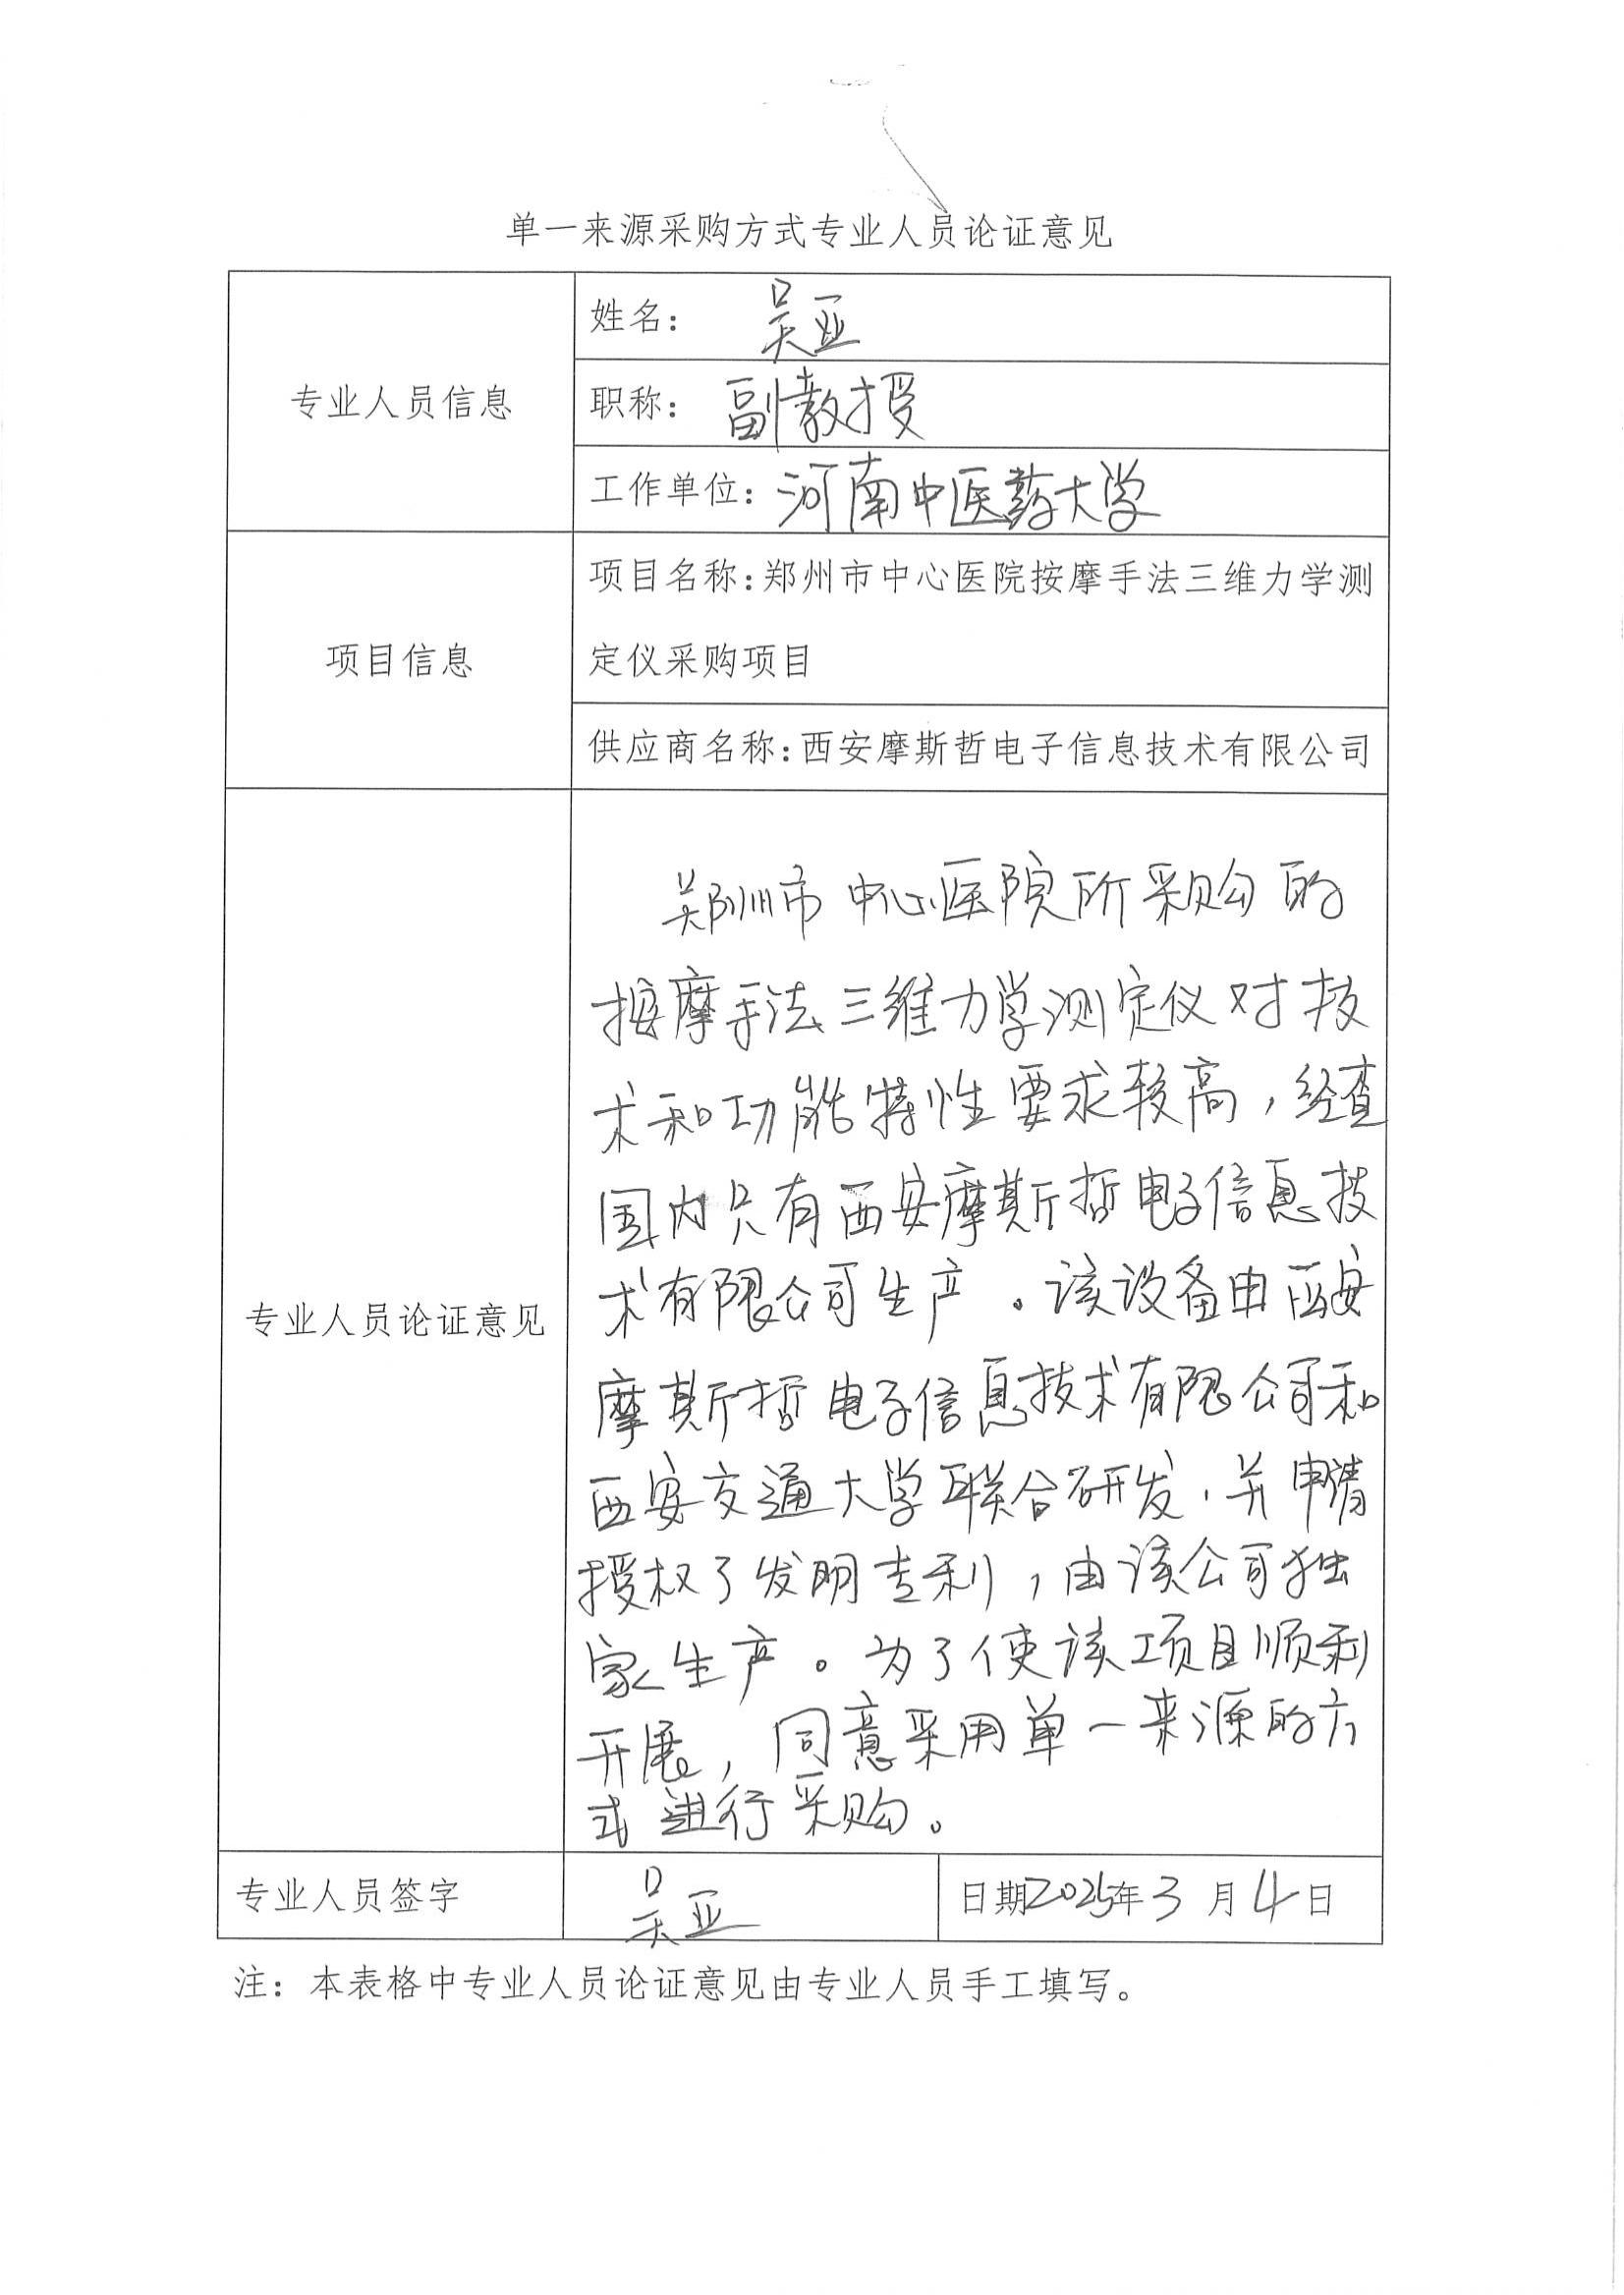 单一来源采购方式专业人员论证意见
专业人员信息
姓名： 吴亚
职称： 副教授
工作单位：河南中医药大学
项目信息
项目名称：郑州市中心医院按摩手法三维力学测
定仪采购项目
供应商名称：西安摩斯哲电子信息技术有限公司
专业人员论证意见
郑州市中心医院所采购的
按摩手法三维力学测定仪对技
术和功能特性要求较高，经查
国内只有西安摩斯哲电子信息技
术有限公司生产。该设备由西安
摩斯哲电子信息技术有限公司和
西安交通大学联合研发，并申请
授权了发明专利，由该公司独
家生产。为了使该项目顺利
开展，同意采用单一来源的方
式进行采购。
专业人员签字 吴亚 日期2025年3月4日
注：本表格中专业人员论证意见由专业人员手工填写。